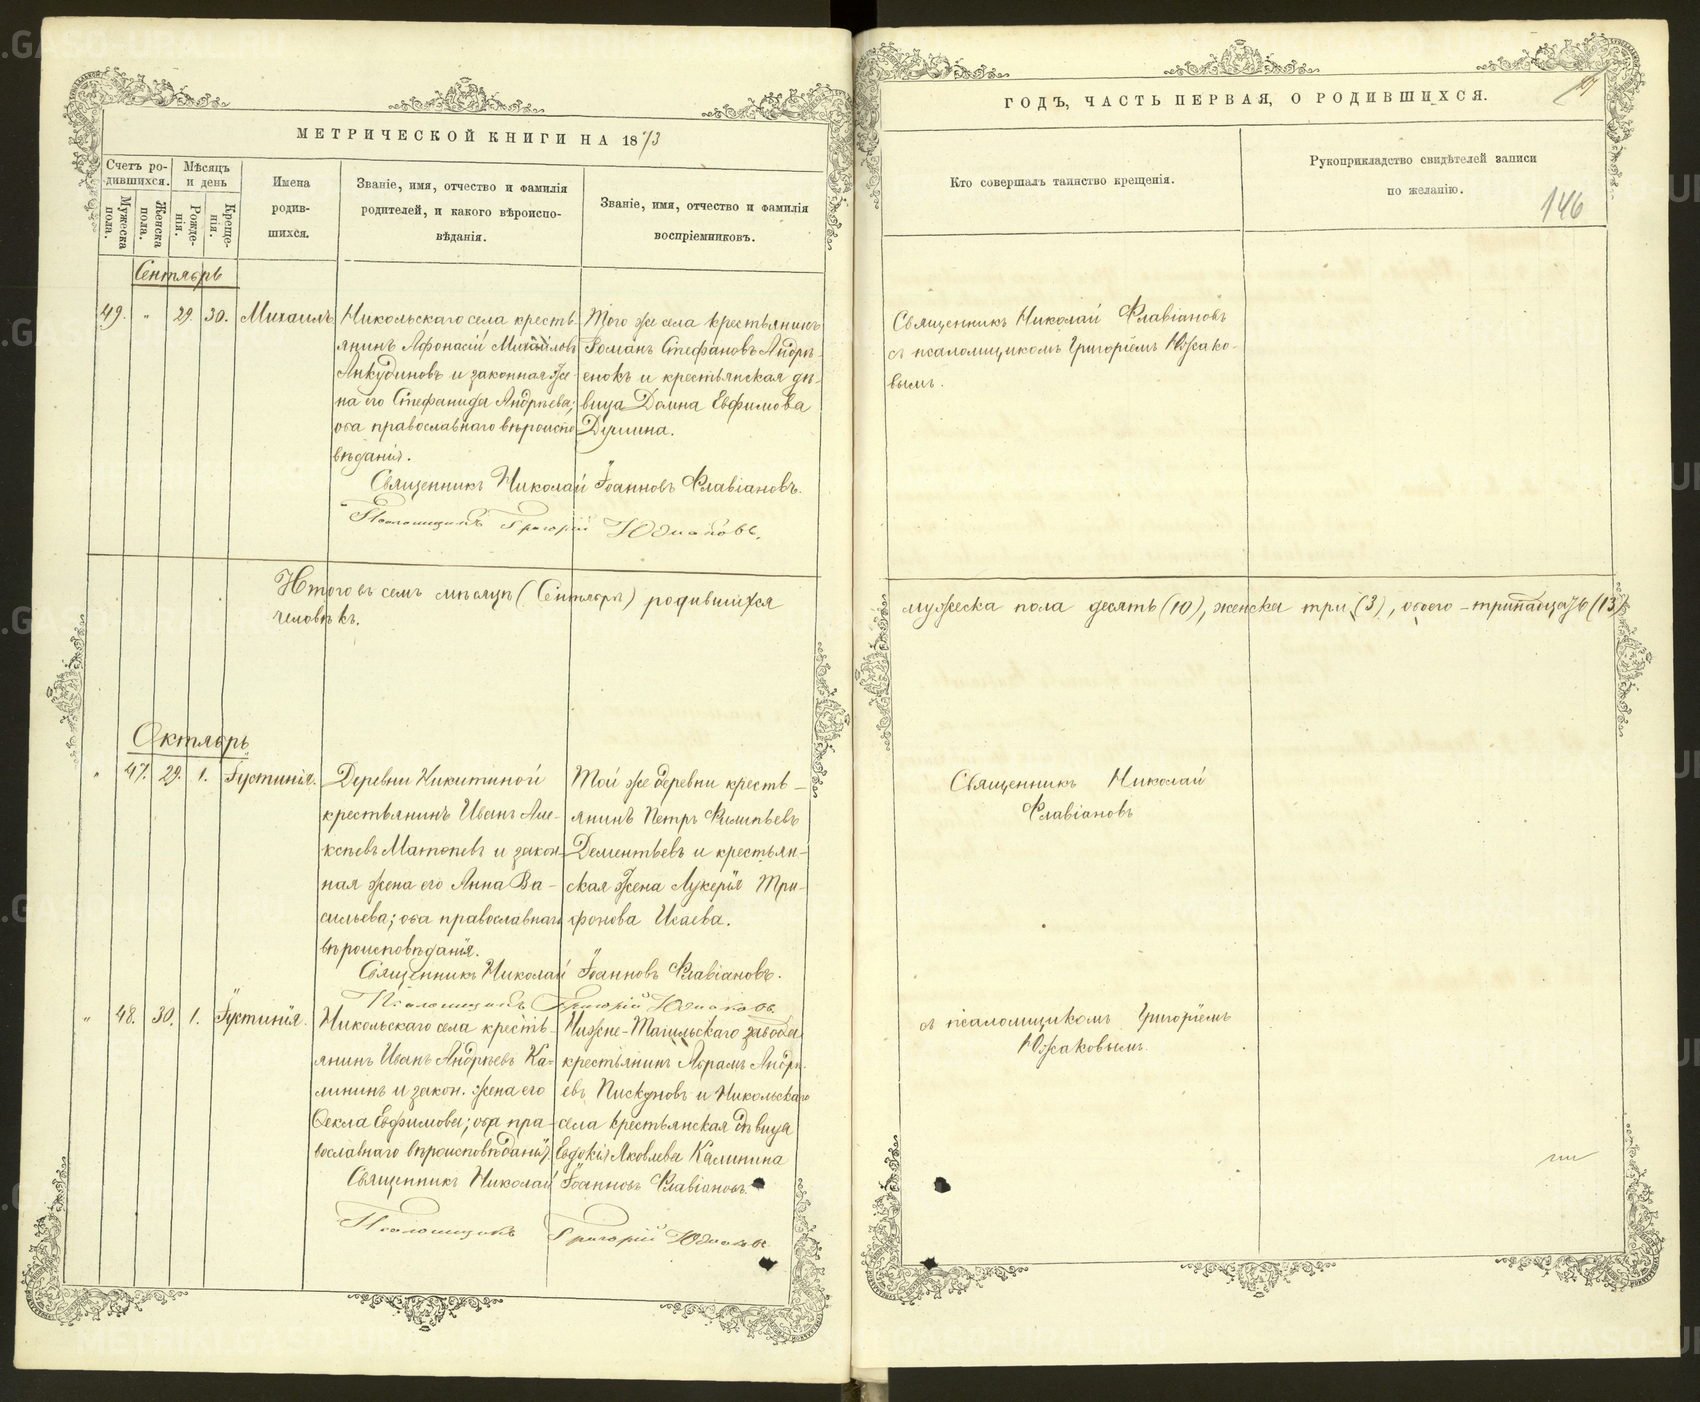 МЕТРИЧЕСКОЙ КНИГИ НА 1873
Счетъ ро-
дившихся.
Мужеска
пола.
Женска
пола.
Мѣсяцъ
и день
Рожде-
нія.
Креще-
нія.
Имена
родив-
шихся.
Званіе, имя, отчество и фамилія
родителей, и какого вѣроиспо-
вѣданія.
Званіе, имя, отчество и фамилія
воспріемниковъ.
Сентябрь
49. " 29. 30. Михаилъ
Никольскаго села кресть-
янинъ Афонасій Михайловъ
Анкудиновъ и законная же-
на его Стефанида Андреева;
оба православнаго вѣроиспо
вѣданія.
Того же села крестьянинъ
Романъ Стефановъ Андре-
енокъ и крестьянская дѣ-
вица Домна Евфимова
Душина.
Священникъ Николай Іоанновъ Флавіановъ.
Псаломщикъ Григорій Южаковъ.
Итого въ семъ мѣсяцѣ (Сентябрѣ) родившихся
человѣкъ.
Октябрь
" 47. 29. 1. Іустинія.
Деревни Никитиной
крестьянинъ Иванъ Але-
ксѣевъ Матвѣевъ и закон-
ная жена его Анна Ва-
сильева; оба православнаго
вѣроисповѣданія.
Той же деревни кресть-
янинъ Петръ Филипьевъ
Дементьевъ и крестьян-
ская жена Лукерія Три-
фонова Исаева.
Священникъ Николай Іоанновъ Флавіановъ.
Псаломщикъ Григорій Южаковъ.
" 48. 30. 1. Іустинія.
Никольскаго села кресть-
янинъ Иванъ Андреевъ Ка-
лининъ и закон. жена его
Ѳекла Евфимова; оба пра-
вославнаго вѣроисповѣданія.
Нижне-Тагильскаго завода
крестьянинъ Абрамъ Андре-
евъ Пискуновъ и Никольскаго
села крестьянская дѣвица
Евдокія Яковлева Калинина
Священникъ Николай Іоанновъ Флавіановъ.
Псаломщикъ Григорій Южаковъ
ГОДЪ, ЧАСТЬ ПЕРВАЯ, О РОДИВШИХСЯ.
Кто совершалъ таинство крещенія.
Рукоприкладство свидѣтелей записи
по желанію.
146
Священникъ Николай Флавіановъ
съ псаломщикомъ Григоріемъ Южако-
вымъ.
мужеска пола десять (10), женска три (3), обоего - тринадцать (13)
Священникъ Николай
Флавіановъ
съ псаломщикомъ Григоріемъ
Южаковымъ.